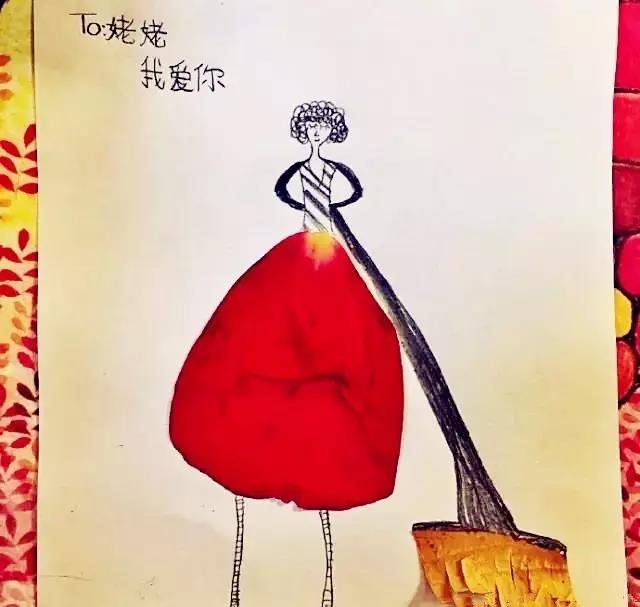 To:姥姥
我爱你